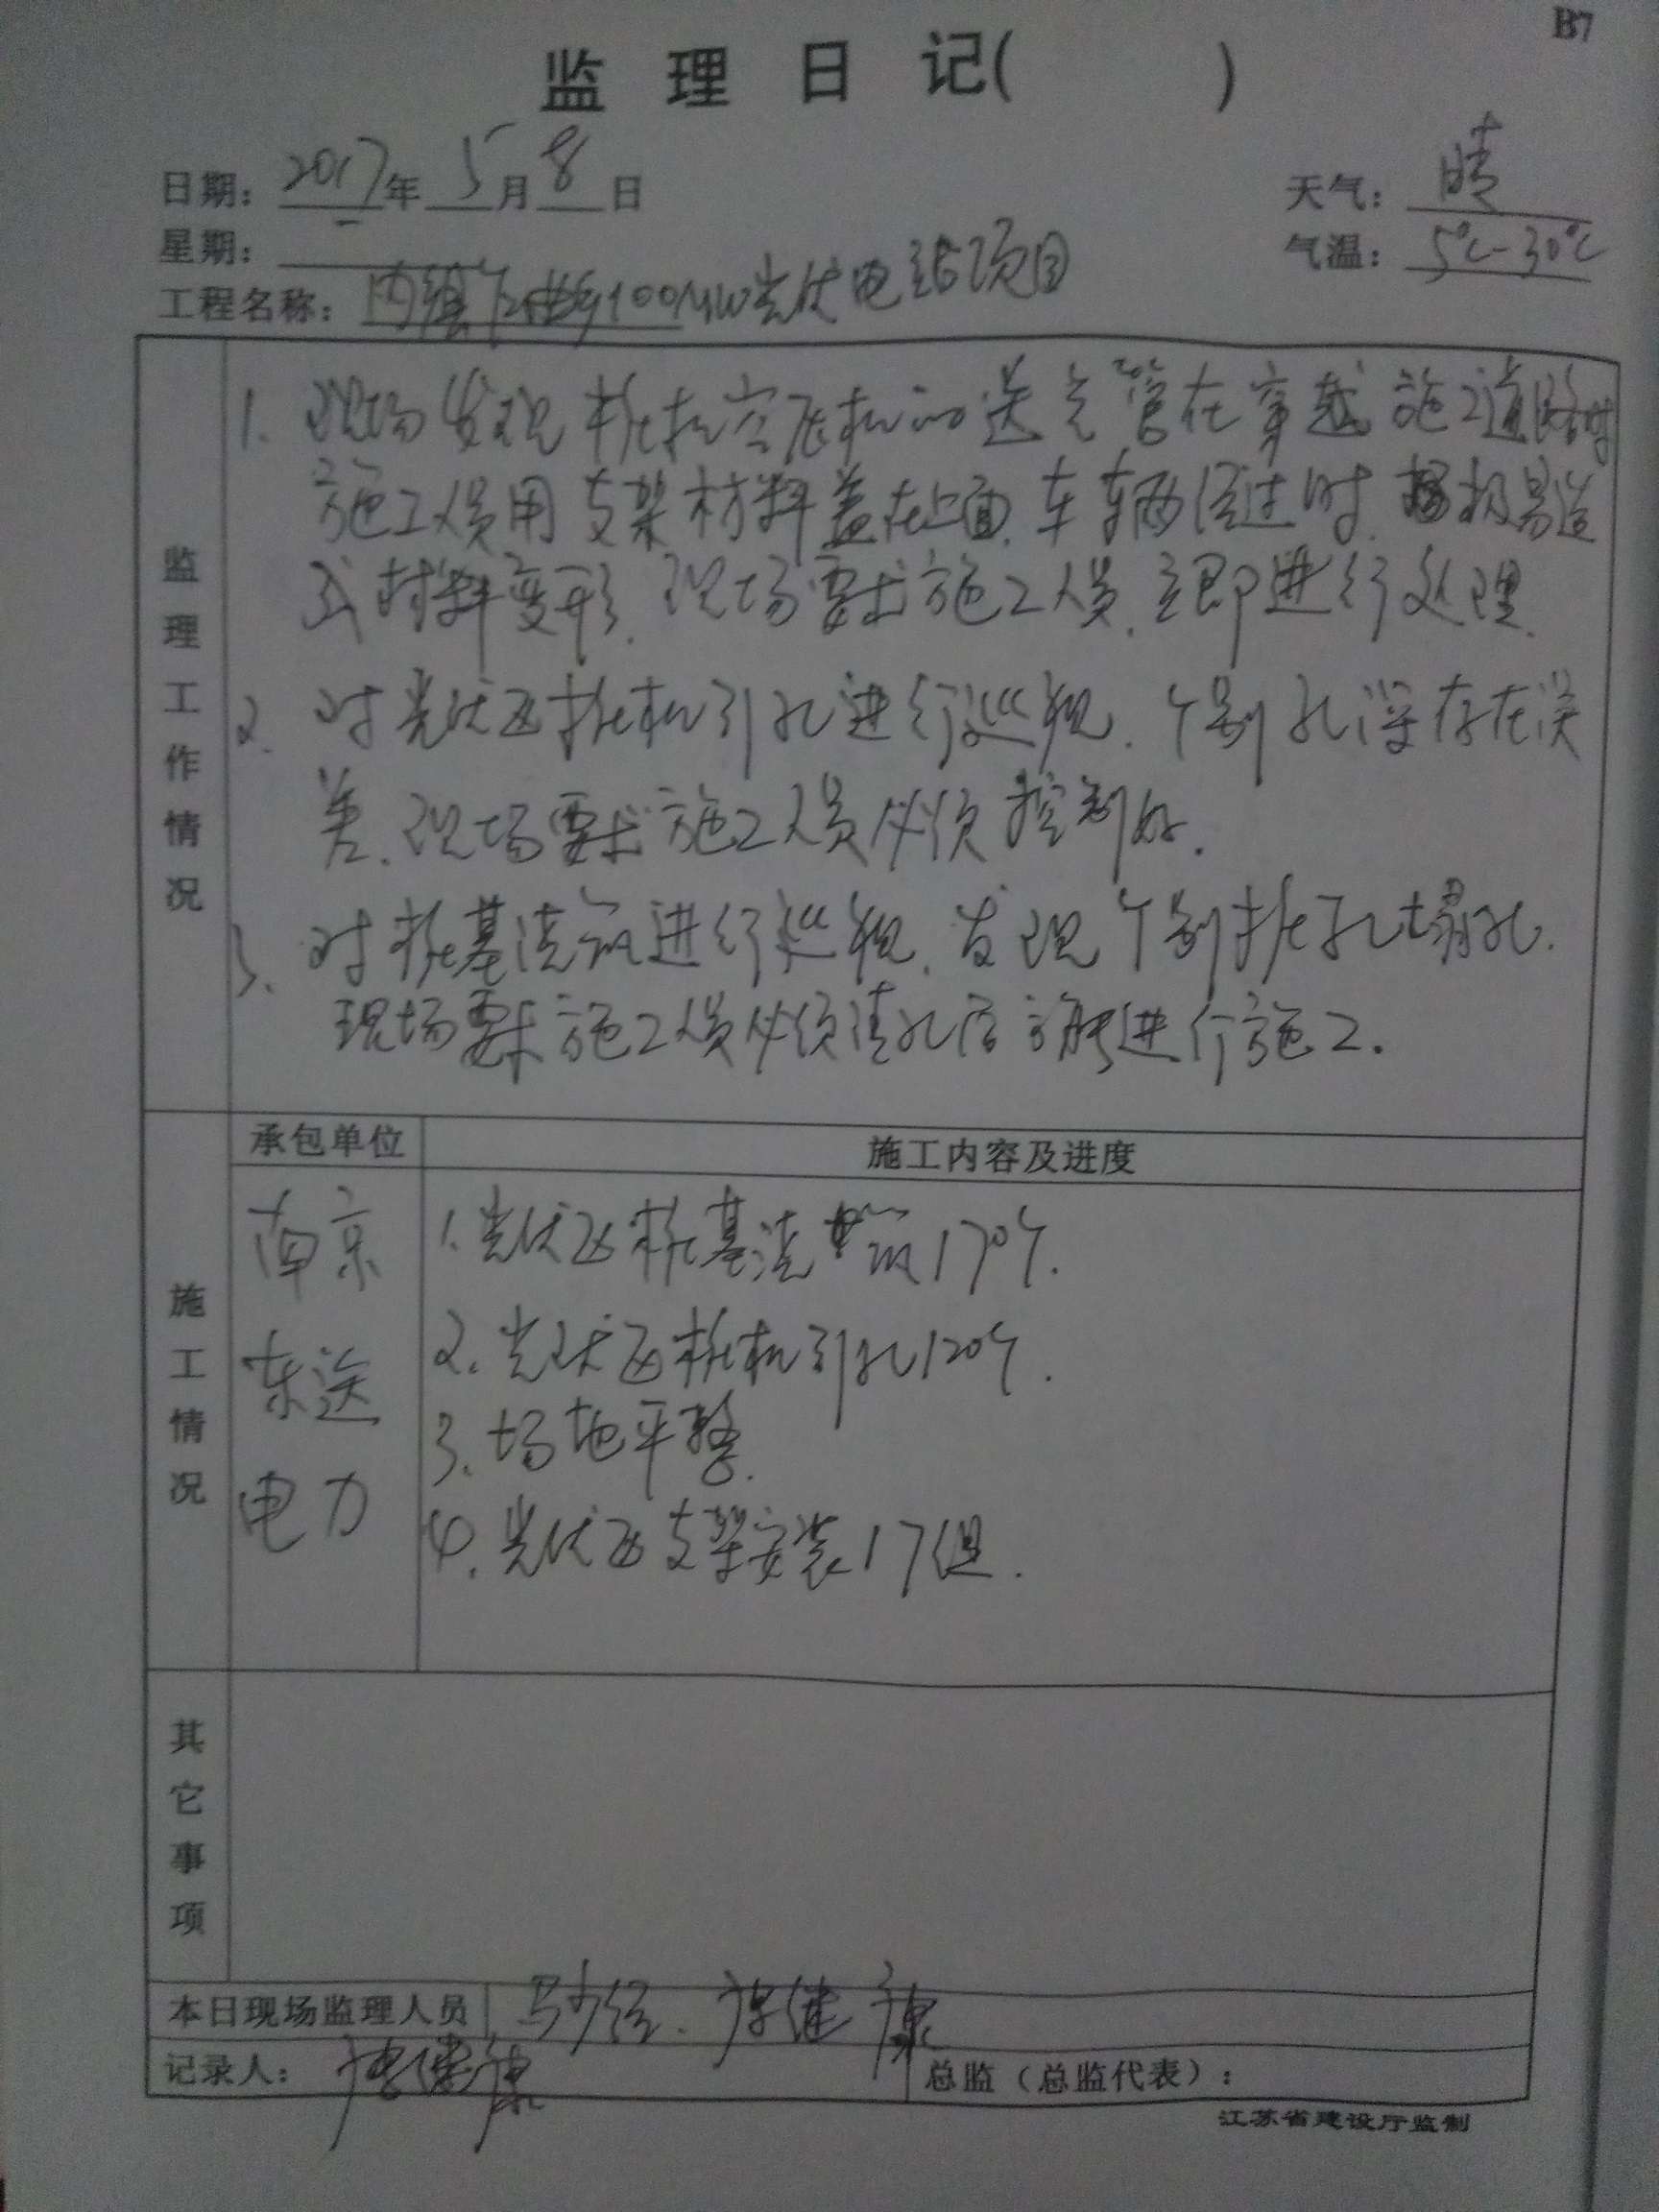 B7
监 理 日 记( )
日期: 2017年 5月 8日
天气: 晴
星期: 一
气温: 5℃-30℃
工程名称: 内 100MW光伏电站项目
监理工作情况
1. 现场发现桩机空压机的送气管在穿越施工道路时
施工人员用支架材料盖在上面,车辆经过时,极易造
成材料变形,现场要求施工人员,立即进行处理.
2. 对光伏区桩机引孔进行巡视,个别孔深存在误
差,现场要求施工人员必须控制好.
3. 对桩基浇筑进行巡视,发现个别桩孔塌孔.
现场要求施工人员必须清孔后方能进行施工.
施工情况
承包单位
施工内容及进度
南京
东送
电力
1.光伏区桩基浇筑170个.
2.光伏区桩机引孔120个.
3.场地平整.
4.光伏区支架安装17组.
其它事项
本日现场监理人员
健康
记录人: 健康
总监(总监代表):
江苏省建设厅监制